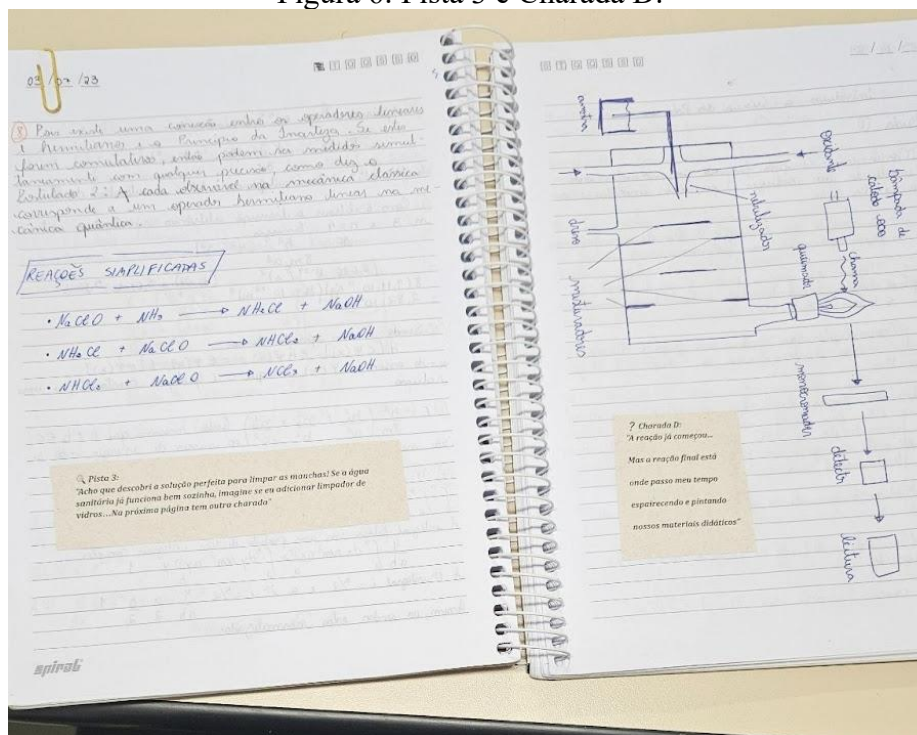 Figura 6: Pista 3 e Charada D.
03/02/23
8 Pois existe uma conexão entre os operadores lineares
e hermitianos e o Princípio da Incerteza. Se eles
forem comutativos, então podem ser medidos simul-
taneamente com qualquer precisão, como diz o
Postulado 2: A cada observável na mecânica clássica
corresponde a um operador hermitiano linear na me-
cânica quântica.
REAÇÕES SIMPLIFICADAS
• NaClO + NH₃ → NH₂Cl + NaOH
• NH₂Cl + NaClO → NHCl₂ + NaOH
• NHCl₂ + NaClO → NCl₃ + NaOH
Pista 3:
"Acho que descobri a solução perfeita para limpar as manchas! Se a água
sanitária já funciona bem sozinha, imagine se eu adicionar limpador de
vidros...Na próxima página tem outra charada"
spiral
oxidante
lâmpada de
cátodo oco
nebulizador
chama
queimador
dreno
misturadores
monocromador
detector
leitura
? Charada D:
"A reação já começou...
Mas a reação final está
onde passo meu tempo
espairecendo e pintando
nossos materiais didáticos"